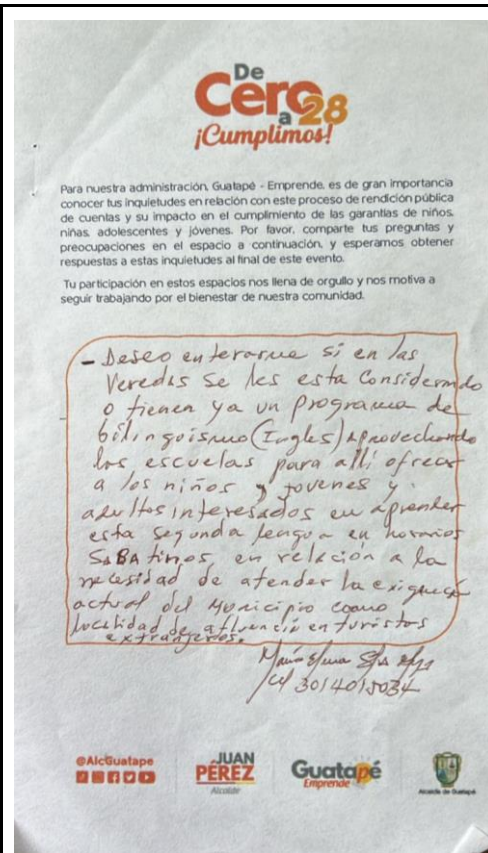 De
Cero
a 28
¡Cumplimos!
Para nuestra administración, Guatapé - Emprende, es de gran importancia
conocer tus inquietudes en relación con este proceso de rendición pública
de cuentas y su impacto en el cumplimiento de las garantías de niños,
niñas, adolescentes y jóvenes. Por favor, comparte tus preguntas y
preocupaciones en el espacio a continuación, y esperamos obtener
respuestas a estas inquietudes al final de este evento.
Tu participación en estos espacios nos llena de orgullo y nos motiva a
seguir trabajando por el bienestar de nuestra comunidad.
- Deseo enterarme si en las
Veredas se les esta Considerando
o tienen ya un programa de
bilinguismo (Ingles) Aprovechando
las escuelas para allí ofrecer
a los niños y jovenes y
adultos interesados en aprender
esta segunda lengua en horarios
SABAtinos en relación a la
necesidad de atender la exigencia
actual del Municipio como
localidad de afluencia en turistas
extranjeros.
Cel 3014015034
@AlcGuatape
JUAN
PÉREZ
Alcalde
Guatapé
Emprende
Alcaldía de Guatapé